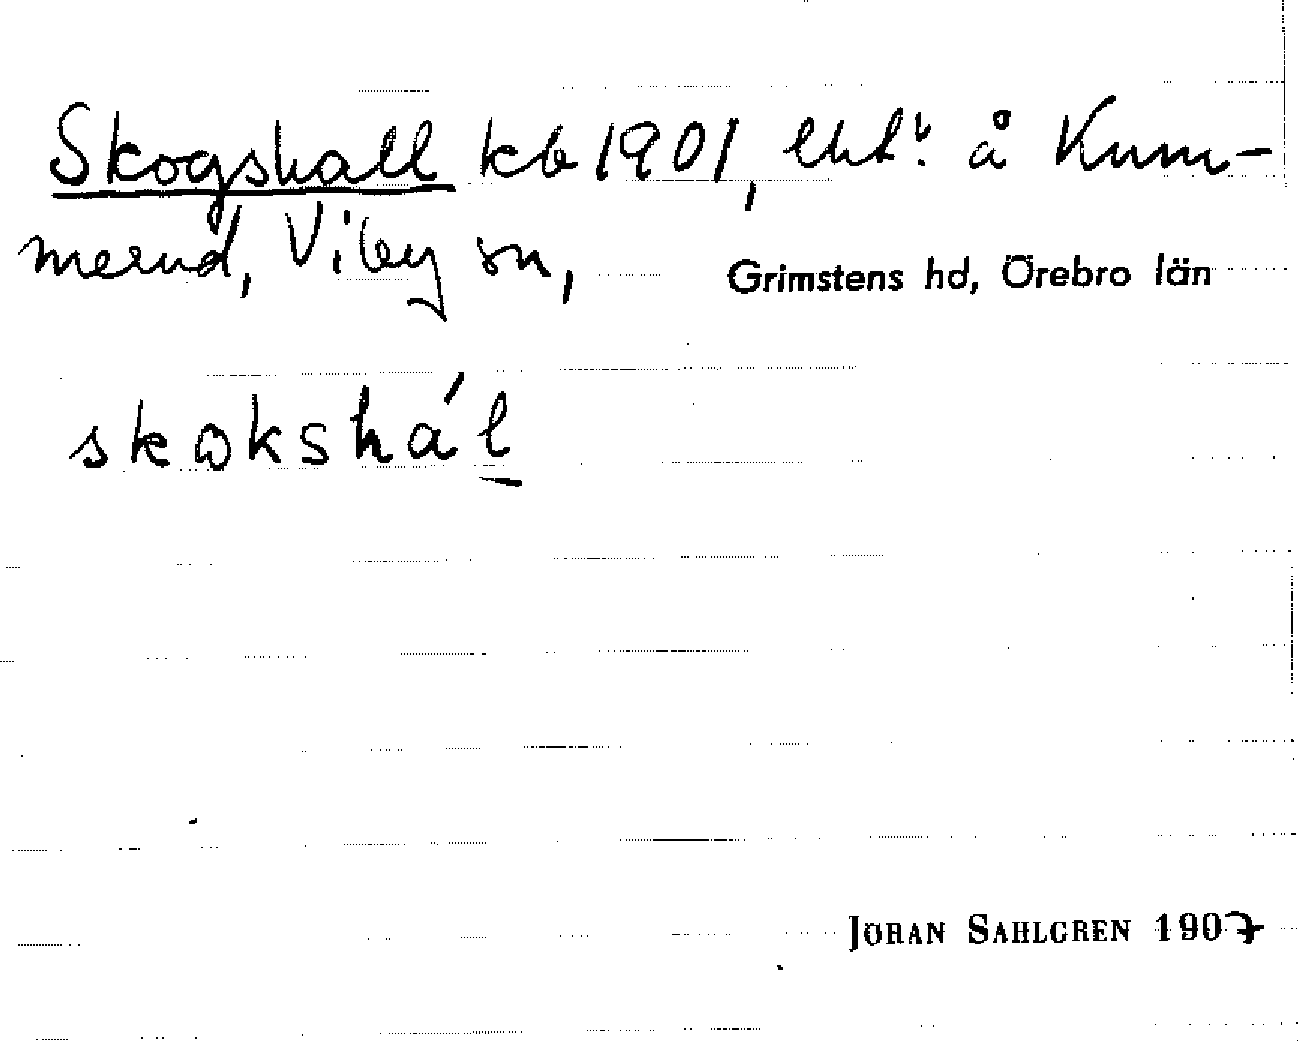 Skogshall kb 1901, lht. å Kum-
merud, Viby sn, Grimstens hd, Örebro län
skokshál
JÖRAN SAHLGREN 1907